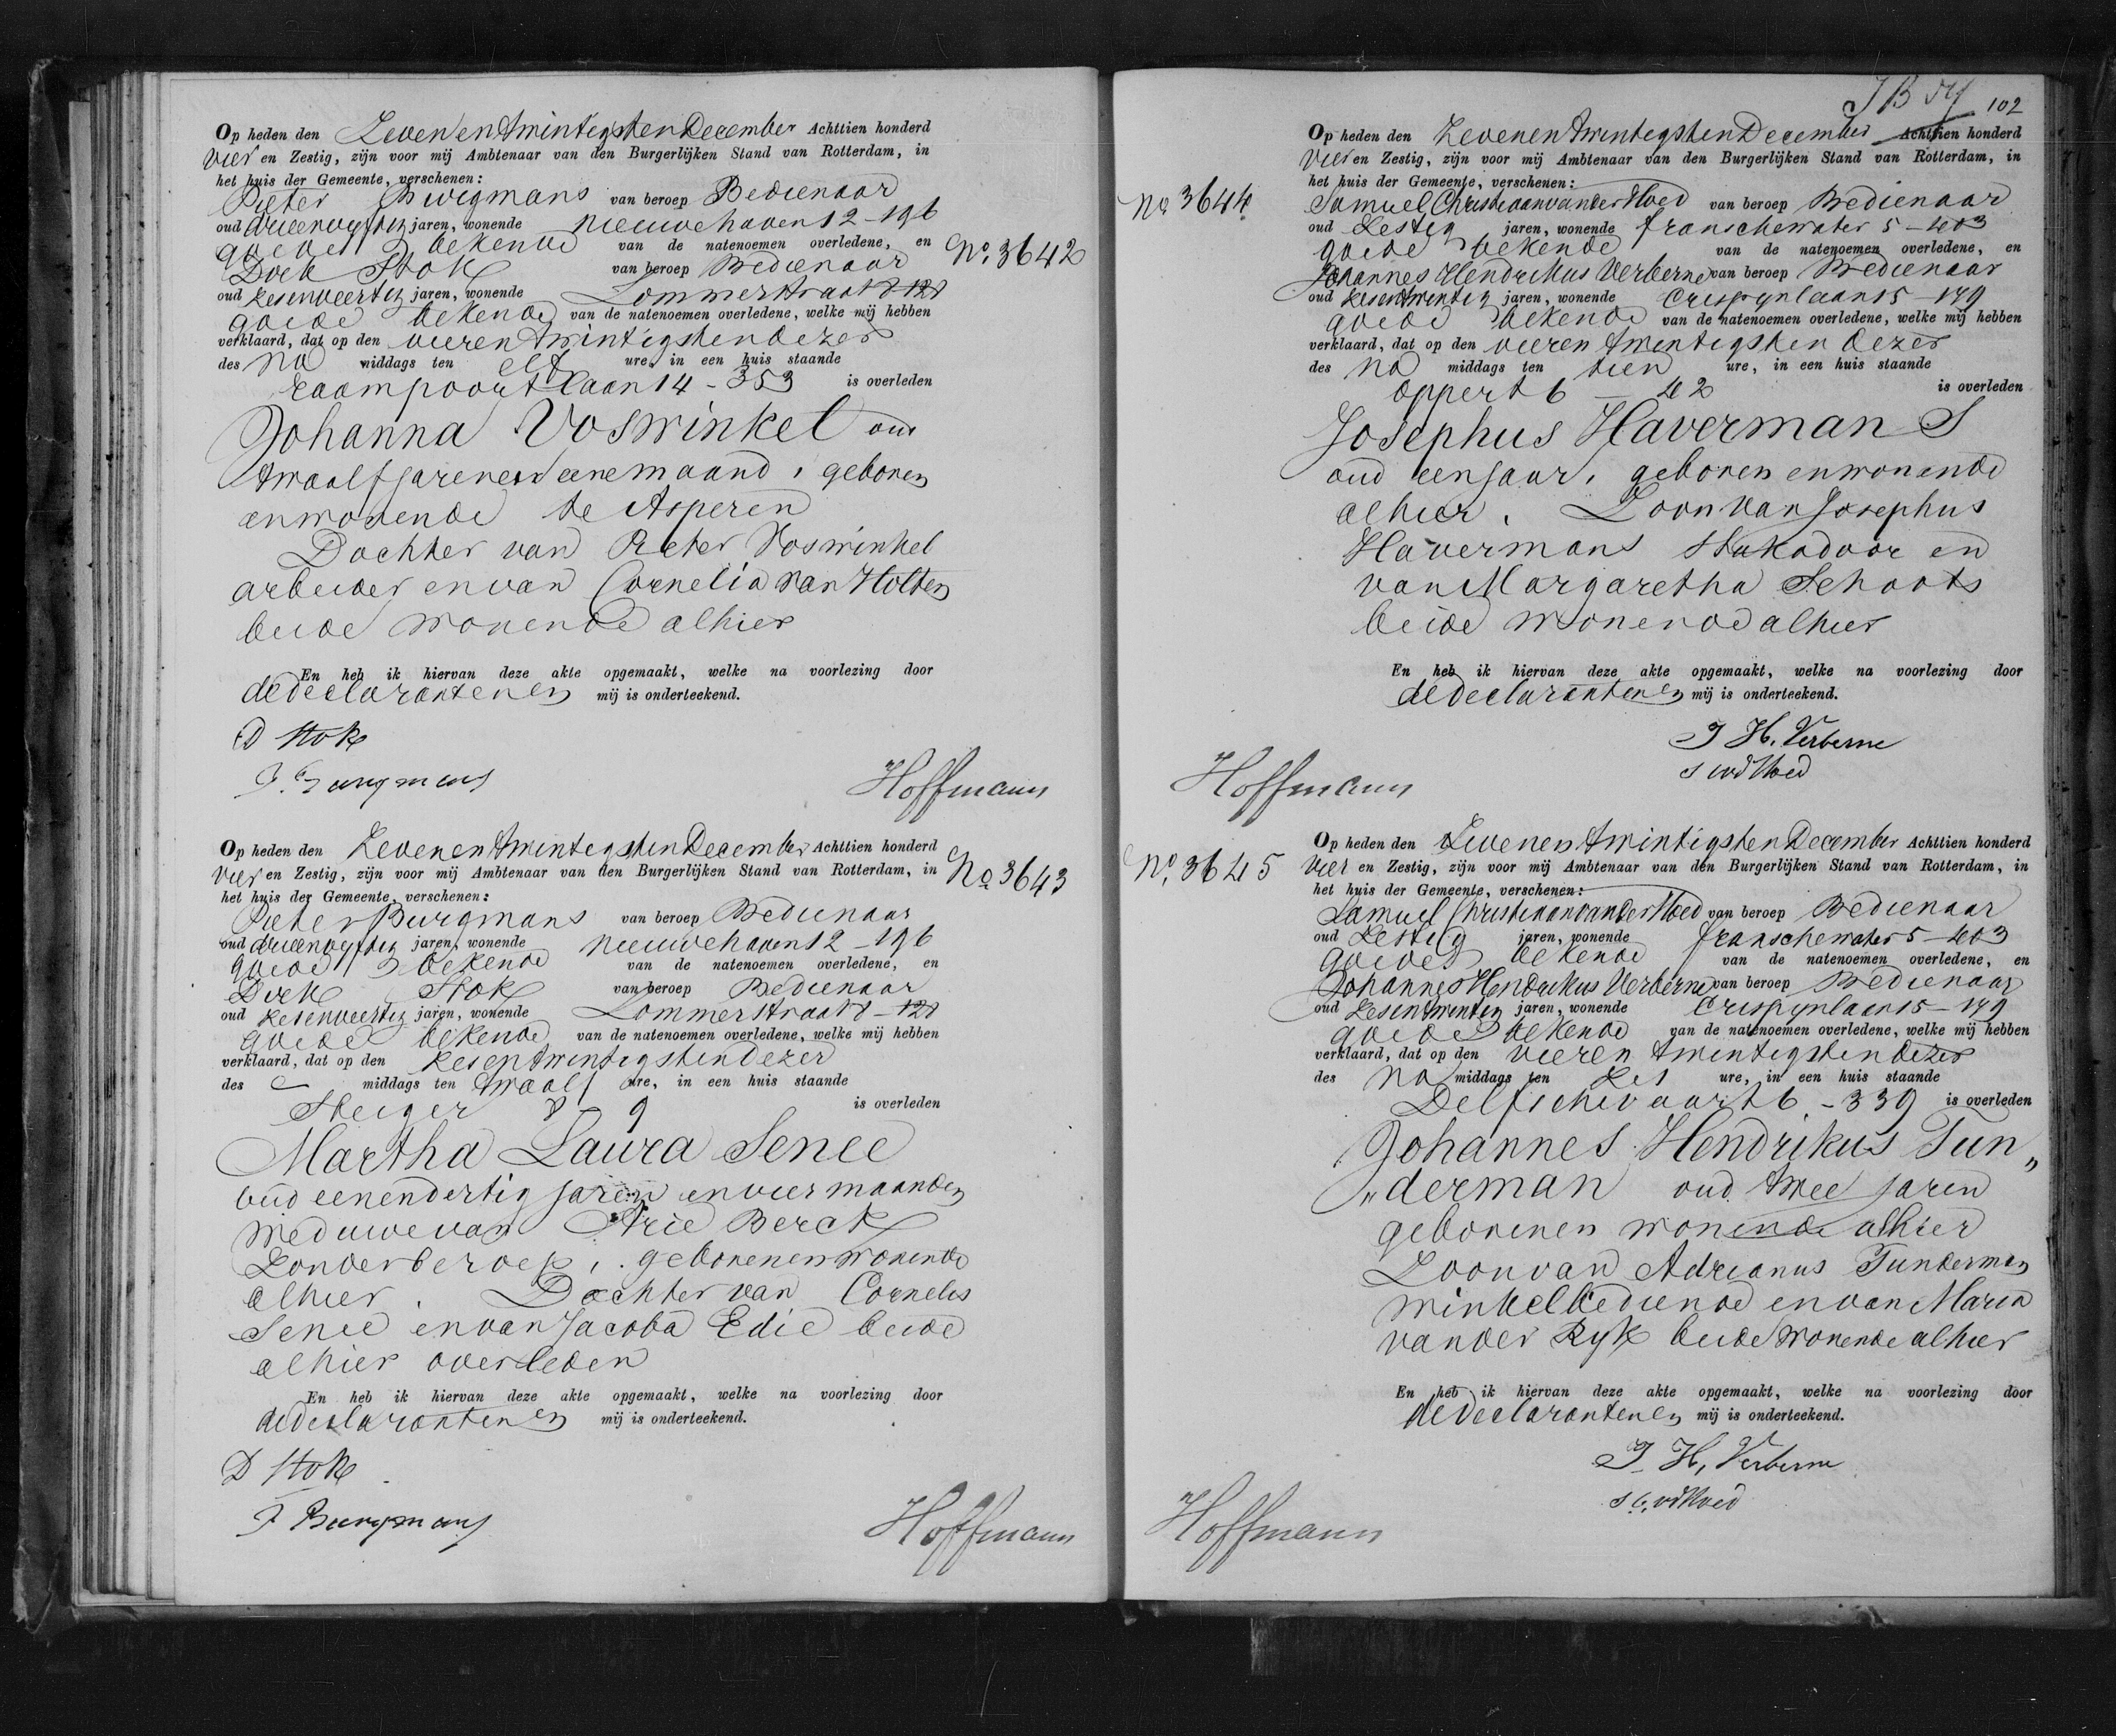 Op heden den Zevenentwintigsten December Achttien honderd
Vier en Zestig, zijn voor mij Ambtenaar van den Burgerlijken Stand van Rotterdam, in
het huis der Gemeente, verschenen:
Pieter Burgmans van beroep Bedienaar
oud drieenvyftig jaren, wonende nieuwehaven 12-196
goede bekende van de natenoemen overledene, en
No. 3642
Dirk Stok van beroep Bedienaar
oud zesenveertig jaren, wonende Lommerstraat 8-128
goede bekende van de natenoemen overledene, welke mij hebben
verklaard, dat op den vieren twintigsten dezer
des na middags ten elf ure, in een huis staande
raampoortlaan 14-353 is overleden
Johanna Voswinkel oud
twaalf jaren en eene maand, geboren
en wonende te Asperen
Dochter van Pieter Voswinkel
arbeider en van Cornelia van Holten
beide wonende alhier
En heb ik hiervan deze akte opgemaakt, welke na voorlezing door
de declaranten en mij is onderteekend.
D Stok
P. Burgmans
Hoffmann
Op heden den Zevenentwintigsten December Achttien honderd
Vier en Zestig, zijn voor mij Ambtenaar van den Burgerlijken Stand van Rotterdam, in
No 3643
het huis der Gemeente, verschenen:
Pieter Burgmans van beroep Bedienaar
oud drieenvyftig jaren, wonende nieuwehaven 12-196
goede bekende van de natenoemen overledene, en
Dirk Stok van beroep Bedienaar
oud zesenveertig jaren, wonende Lommerstraat 8-128
goede bekende van de natenoemen overledene, welke mij hebben
verklaard, dat op den zesentwintigsten dezer
des middags ten twaalf ure, in een huis staande
Steiger 8 9 is overleden
Martha Laura Senee
oud eenendertig jaren en vier maanden
weduwe van Arie Berck
zonder beroep, geboren en wonende
alhier. Dochter van Cornelis
Senee en van Jacoba Edie beide
alhier overleden
En heb ik hiervan deze akte opgemaakt, welke na voorlezing door
de declaranten en mij is onderteekend.
D Stok
P Burgmans
Hoffmann
102
Op heden den Zevenentwintigsten December Achttien honderd
Vier en Zestig, zijn voor mij Ambtenaar van den Burgerlijken Stand van Rotterdam, in
het huis der Gemeente, verschenen:
No 3644
Samuel Christiaan van der Hoed van beroep Bedienaar
oud Zestig jaren, wonende franschewater 5-403
goede bekende van de natenoemen overledene, en
Johannes Hendrikus Verberne van beroep Bedienaar
oud zesentwintig jaren, wonende Crispynlaan 15-179
goede bekende van de natenoemen overledene, welke mij hebben
verklaard, dat op den vieren twintigsten dezer
des na middags ten tien ure, in een huis staande
oppert 6-42 is overleden
Josephus Havermans
oud een jaar, geboren en wonende
alhier. Zoon van Josephus
Havermans stukadoor en
van Margaretha Schoots
beide wonende alhier
En heb ik hiervan deze akte opgemaakt, welke na voorlezing door
de declaranten en mij is onderteekend.
J H. Verberne
S vd Hoed
Hoffmann
Op heden den Zevenentwintigsten December Achttien honderd
No. 3645
Vier en Zestig, zijn voor mij Ambtenaar van den Burgerlijken Stand van Rotterdam, in
het huis der Gemeente, verschenen:
Samuel Christiaan van der Hoed van beroep Bedienaar
oud Zestig jaren, wonende franschewater 5-403
goede bekende van de natenoemen overledene, en
Johannes Hendrikus Verberne van beroep Bedienaar
oud zesentwintig jaren, wonende Crispynlaan 15-179
goede bekende van de natenoemen overledene, welke mij hebben
verklaard, dat op den vieren twintigsten dezer
des na middags ten zes ure, in een huis staande
Delfschevaart 6-339 is overleden
Johannes Hendrikus Tun„
„derman oud twee jaren
geboren en wonende alhier
Zoon van Adrianus Tunderman
winkelbediende en van Maria
van der Ryk beide wonende alhier
En heb ik hiervan deze akte opgemaakt, welke na voorlezing door
de declaranten en mij is onderteekend.
J. H. Verberne
S C. vd Hoed
Hoffmann